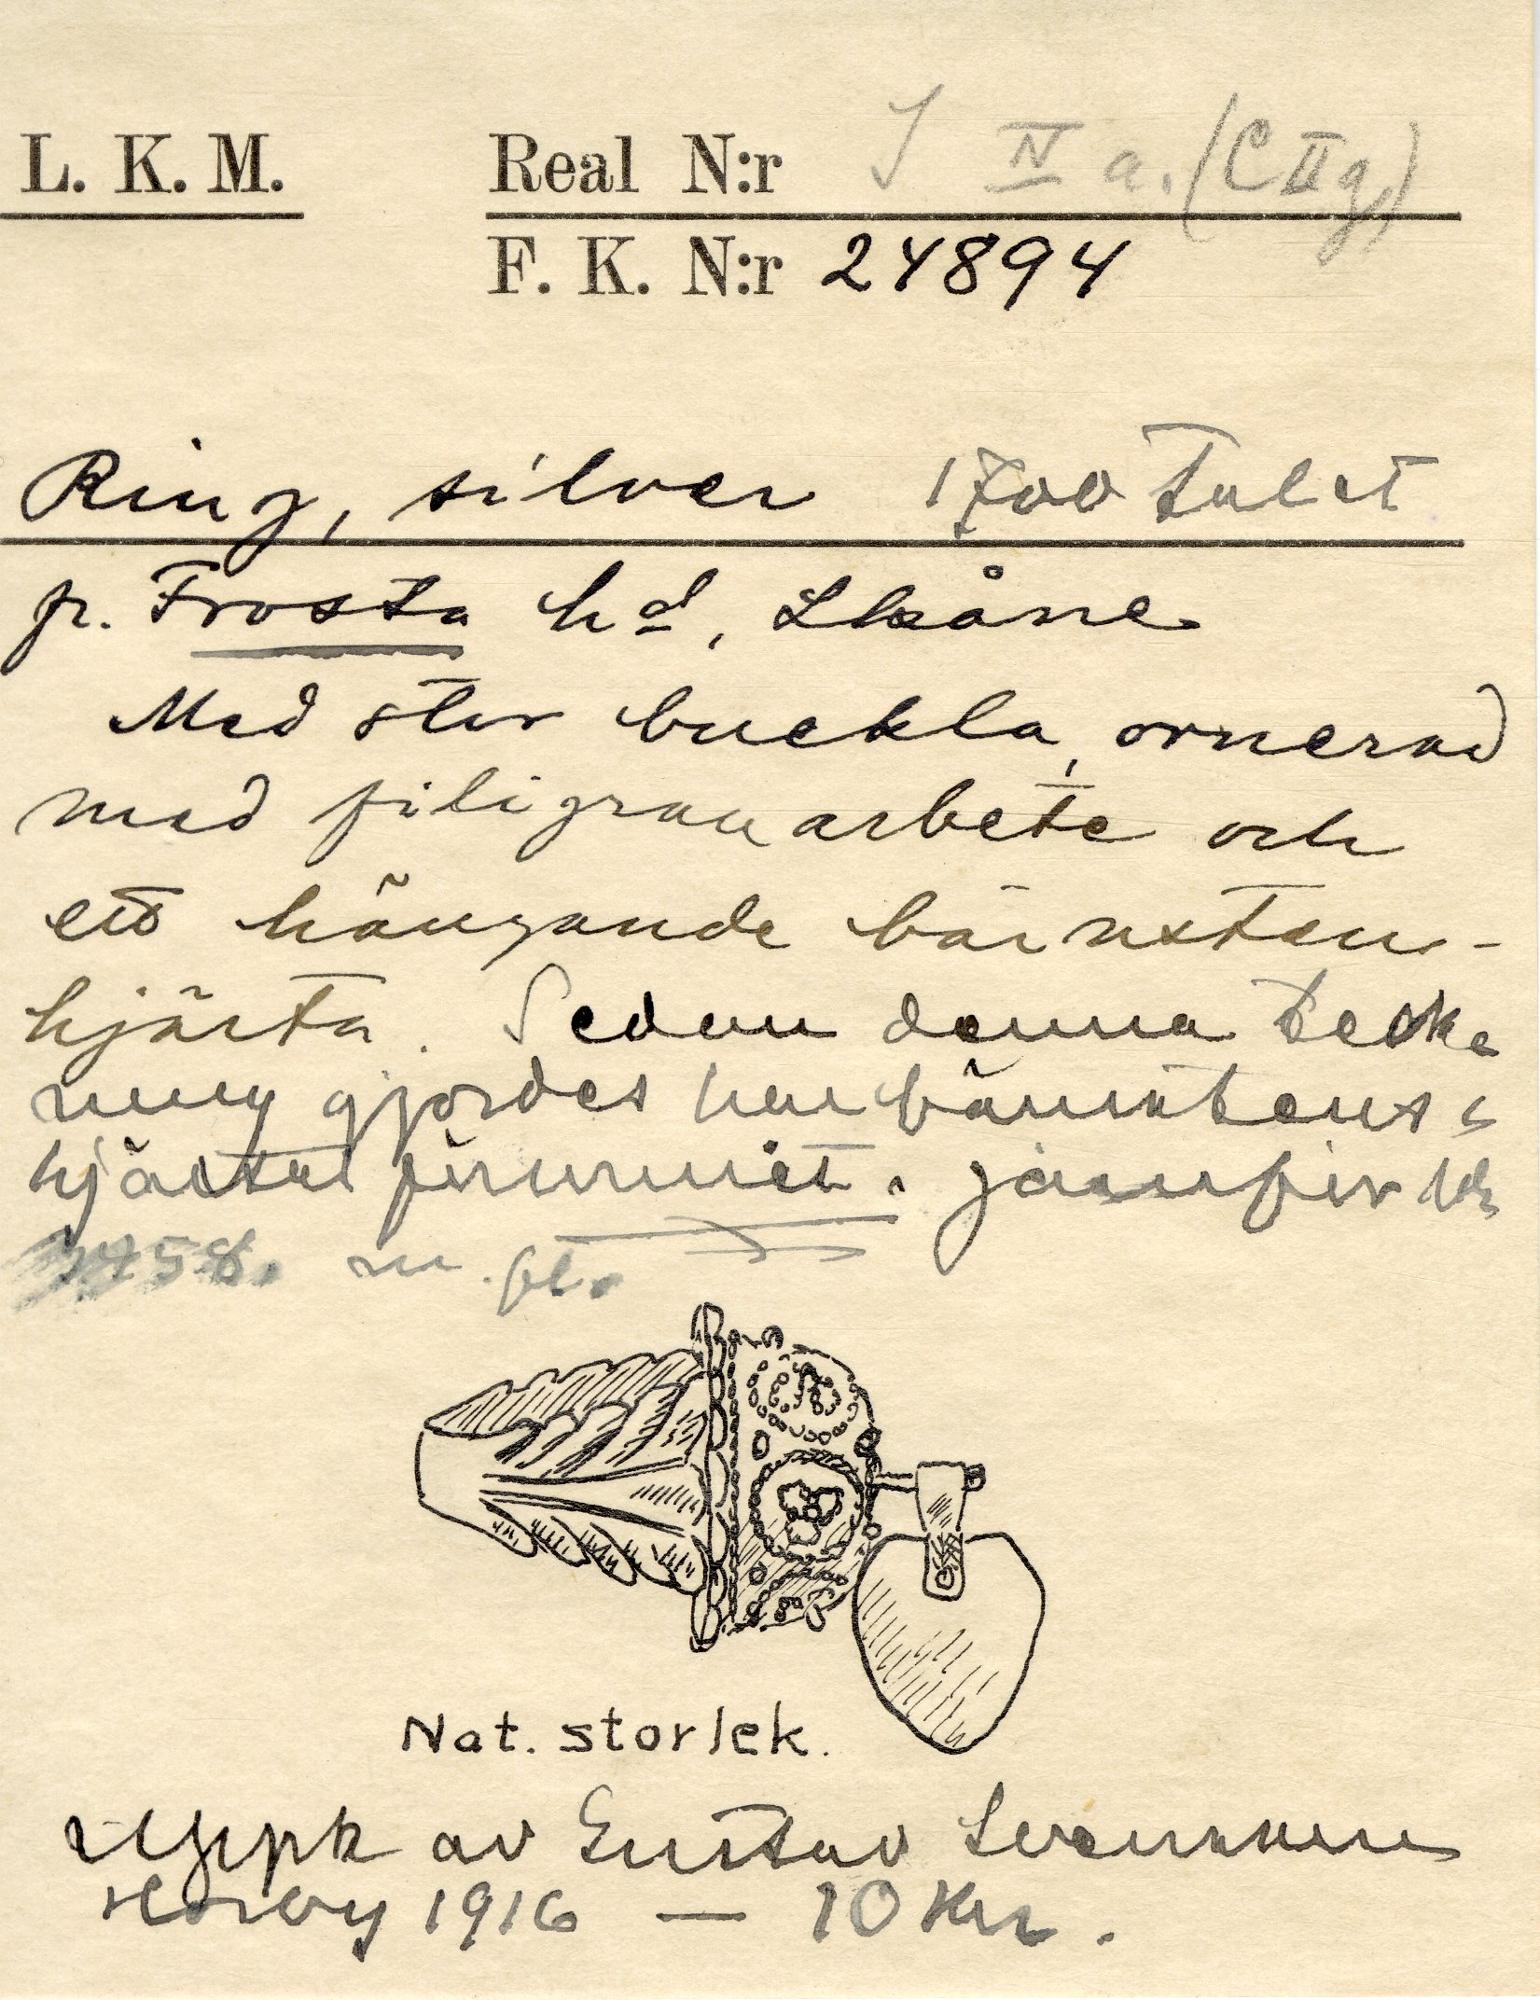 L. K. M. Real N:r J IV a. (C II g.)
F. K. N:r 24894
Ring, silver 1700 talet
fr. Frosta hd, Skåne
Med stor buckla, ornerad
med filigranarbete och
ett hängande bärnstens-
hjärta. Sedan denna teck
ning gjordes har bärnstens
hjärtat försvunnit. Jämför
m. fl.
Nat. storlek.
Uppk av Gustav Svensson
Hörby 1916 — 10 Kr.